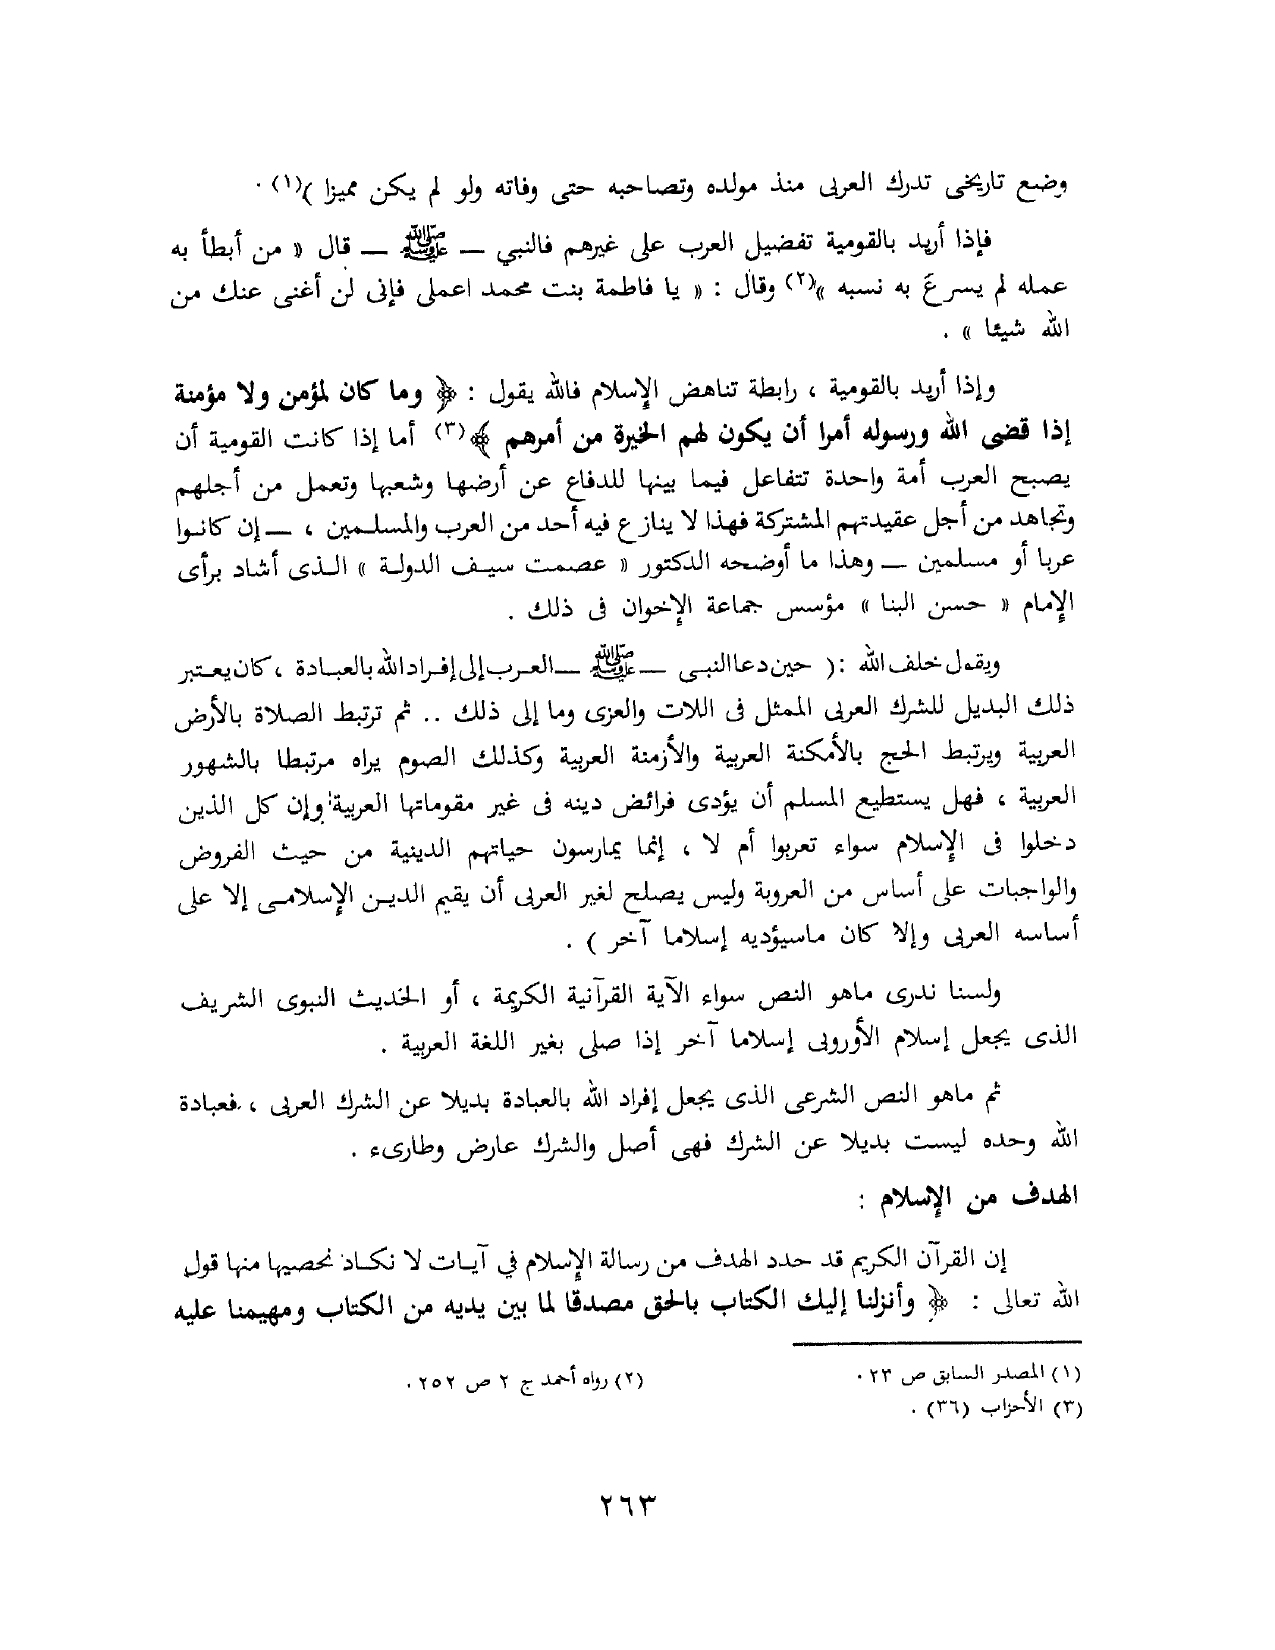 وضع تاريخى تدرك العربى منذ مولده وتصاحبه حتى وفاته ولو لم يكن مميزا )(١) .
فإذا أريد بالقومية تفضيل العرب على غيرهم فالنبي — ﷺ — قال « من أبطأ به
عمله لم يسرع به نسبه »(٢) وقال : « يا فاطمة بنت محمد اعملى فإنى لن أغنى عنك من
الله شيئا » .
وإذا أريد بالقومية ، رابطة تناهض الإسلام فالله يقول : ﴿ وما كان لمؤمن ولا مؤمنة
إذا قضى الله ورسوله أمرا أن يكون لهم الخيرة من أمرهم ﴾(٣) أما إذا كانت القومية أن
يصبح العرب أمة واحدة تتفاعل فيما بينها للدفاع عن أرضها وشعبها وتعمل من أجلهم
وتجاهد من أجل عقيدتهم المشتركة فهذا لا ينازع فيه أحد من العرب والمسلمين ، — إن كانوا
عربا أو مسلمين — وهذا ما أوضحه الدكتور « عصمت سيف الدولة » الذى أشاد برأى
الإمام « حسن البنا » مؤسس جماعة الإخوان فى ذلك .
ويقول خلف الله : ( حين دعا النبى — ﷺ — العرب إلى إفراد الله بالعبادة ، كان يعتبر
ذلك البديل للشرك العربى الممثل فى اللات والعزى وما إلى ذلك .. ثم ترتبط الصلاة بالأرض
العربية ويرتبط الحج بالأمكنة العربية والأزمنة العربية وكذلك الصوم يراه مرتبطا بالشهور
العربية ، فهل يستطيع المسلم أن يؤدى فرائض دينه فى غير مقوماتها العربية وإن كل الذين
دخلوا فى الإسلام سواء تعربوا أم لا ، إنما يمارسون حياتهم الدينية من حيث الفروض
والواجبات على أساس من العروبة وليس يصلح لغير العربى أن يقيم الدين الإسلامى إلا على
أساسه العربى وإلا كان ماسيؤديه إسلاما آخر ) .
ولسنا ندرى ماهو النص سواء الآية القرآنية الكريمة ، أو الحديث النبوى الشريف
الذى يجعل إسلام الأوروبى إسلاما آخر إذا صلى بغير اللغة العربية .
ثم ماهو النص الشرعى الذى يجعل إفراد الله بالعبادة بديلا عن الشرك العربى ، فعبادة
الله وحده ليست بديلا عن الشرك فهى أصل والشرك عارض وطارىء .
الهدف من الإسلام :
إن القرآن الكريم قد حدد الهدف من رسالة الإسلام في آيات لا نكاد نحصيها منها قول
الله تعالى : ﴿ وأنزلنا إليك الكتاب بالحق مصدقا لما بين يديه من الكتاب ومهيمنا عليه
(١) المصدر السابق ص ٢٣ .
(٢) رواه أحمد ج ٢ ص ٢٥٢ .
(٣) الأحزاب (٣٦) .
٢٦٣